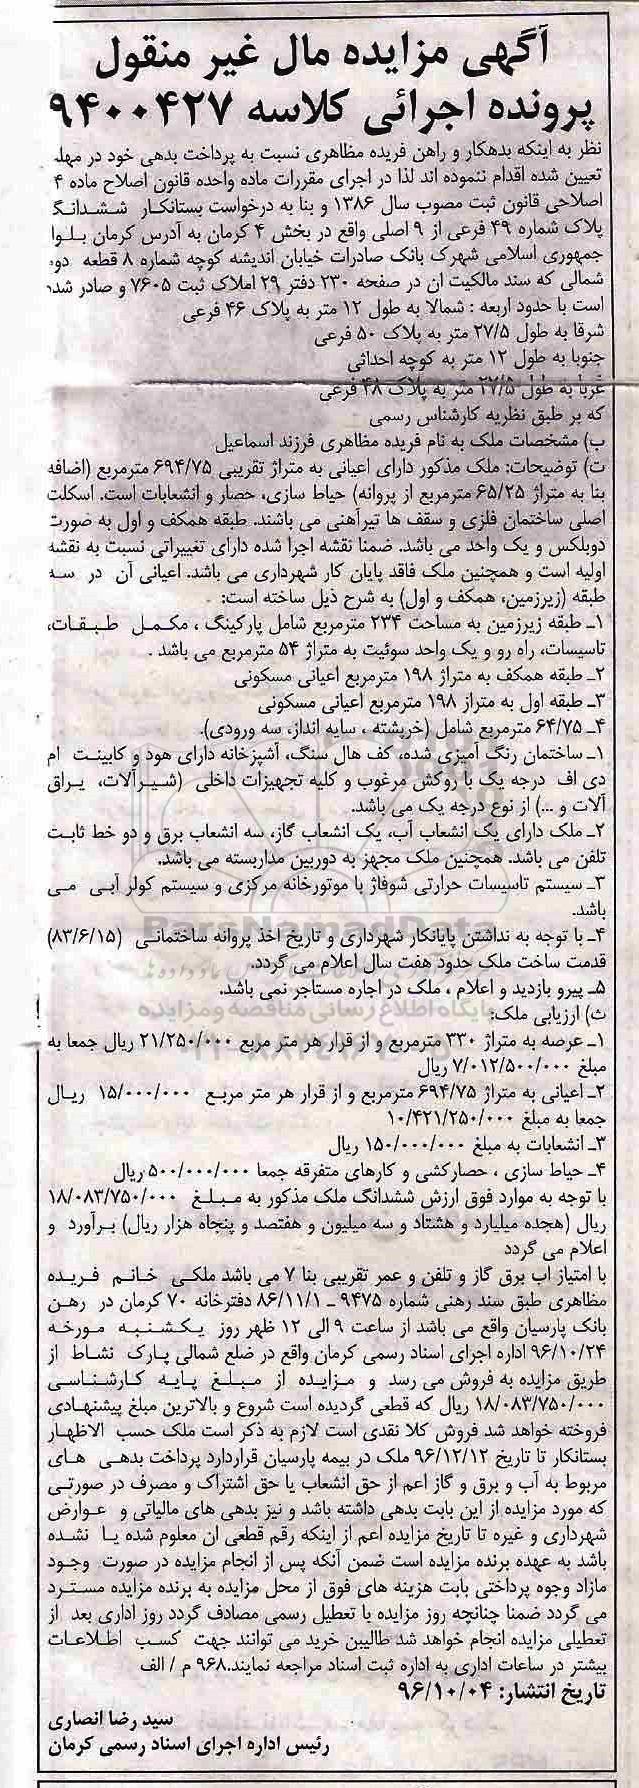 آگهی مزایده مال غیر منقول
پرونده اجرائی کلاسه ۹۴۰۰۴۲۷
نظر به اینکه بدهکار و راهن فریده مظاهری نسبت به پرداخت بدهی خود در مهل
تعیین شده اقدام ننموده اند لذا در اجرای مقررات ماده واحده قانون اصلاح ماده ۴
اصلاحی قانون ثبت مصوب سال ۱۳۸۶ و بنا به درخواست بستانکار ششدانگ
پلاک شماره ۴۹ فرعی از ۹ اصلی واقع در بخش ۴ کرمان به آدرس کرمان بلوا
جمهوری اسلامی شهرک بانک صادرات خیابان اندیشه کوچه شماره ۸ قطعه دو
شمالی که سند مالکیت ان در صفحه ۲۳۰ دفتر ۲۹ املاک ثبت ۷۶۰۵ و صادر شد
است با حدود اربعه : شمالا به طول ۱۲ متر به پلاک ۴۶ فرعی
شرقا به طول ۲۷/۵ متر به پلاک ۵۰ فرعی
جنوبا به طول ۱۲ متر به کوچه احداثی
غربا به طول ۲۷/۵ متر به پلاک ۴۸ فرعی
که بر طبق نظریه کارشناس رسمی
ب) مشخصات ملک به نام فریده مظاهری فرزند اسماعیل
ت) توضیحات: ملک مذکور دارای اعیانی به متراژ تقریبی ۶۹۴/۷۵ مترمربع (اضافه
بنا به متراژ ۶۵/۲۵ مترمربع از پروانه) حیاط سازی، حصار و انشعابات است. اسکلت
اصلی ساختمان فلزی و سقف ها تیرآهنی می باشند. طبقه همکف و اول به صورت
دوبلکس و یک واحد می باشد. ضمنا نقشه اجرا شده دارای تغییراتی نسبت به نقشه
اولیه است و همچنین ملک فاقد پایان کار شهرداری می باشد. اعیانی آن در سه
طبقه (زیرزمین، همکف و اول) به شرح ذیل ساخته است:
۱ـ طبقه زیرزمین به مساحت ۲۳۴ مترمربع شامل پارکینگ ، مکمل طبقات،
تاسیسات، راه رو و یک واحد سوئیت به متراژ ۵۴ مترمربع می باشد .
۲ـ طبقه همکف به متراژ ۱۹۸ مترمربع اعیانی مسکونی
۳ـ طبقه اول به متراز ۱۹۸ مترمربع اعیانی مسکونی
۴ـ ۶۴/۷۵ مترمربع شامل (خرپشته ، سایه انداز، سه ورودی).
۱ـ ساختمان رنگ آمیزی شده، کف هال سنگ، آشپزخانه دارای هود و کابینت ام
دی اف درجه یک با روکش مرغوب و کلیه تجهیزات داخلی (شیرآلات، یراق
آلات و ...) از نوع درجه یک می باشد.
۲ـ ملک دارای یک انشعاب آب، یک انشعاب گاز، سه انشعاب برق و دو خط ثابت
تلفن می باشد. همچنین ملک مجهز به دوربین مداربسته می باشد.
۳ـ سیستم تاسیسات حرارتی شوفاژ با موتورخانه مرکزی و سیستم کولر آبی می
باشد.
۴ـ با توجه به نداشتن پایانکار شهرداری و تاریخ اخذ پروانه ساختمانی (۸۳/۶/۱۵)
قدمت ساخت ملک حدود هفت سال اعلام می گردد.
۵ـ پیرو بازدید و اعلام ، ملک در اجاره مستاجر نمی باشد.
ث) ارزیابی ملک:
۱ـ عرصه به متراژ ۳۳۰ مترمربع و از قرار هر متر مربع ۲۱/۲۵۰/۰۰۰ ریال جمعا به
مبلغ ۷/۰۱۲/۵۰۰/۰۰۰ ریال
۲ـ اعیانی به متراژ ۶۹۴/۷۵ مترمربع و از قرار هر متر مربع ۱۵/۰۰۰/۰۰۰ ریال
جمعا به مبلغ ۱۰/۴۲۱/۲۵۰/۰۰۰
۳ـ انشعابات به مبلغ ۱۵۰/۰۰۰/۰۰۰ ریال
۴ـ حیاط سازی ، حصارکشی و کارهای متفرقه جمعا ۵۰۰/۰۰۰/۰۰۰ ریال
با توجه به موارد فوق ارزش ششدانگ ملک مذکور به مبلغ ۱۸/۰۸۳/۷۵۰/۰۰۰
ریال (هجده میلیارد و هشتاد و سه میلیون و هفتصد و پنجاه هزار ریال) برآورد و
اعلام می گردد
با امتیاز اب برق گاز و تلفن و عمر تقریبی بنا ۷ می باشد ملکی خانم فریده
مظاهری طبق سند رهنی شماره ۹۴۷۵ ـ ۸۶/۱۱/۱ دفترخانه ۷۰ کرمان در رهن
بانک پارسیان واقع می باشد از ساعت ۹ الی ۱۲ ظهر روز یکشنبه مورخه
۹۶/۱۰/۲۴ اداره اجرای اسناد رسمی کرمان واقع در ضلع شمالی پارک نشاط از
طریق مزایده به فروش می رسد و مزایده از مبلغ پایه کارشناسی
۱۸/۰۸۳/۷۵۰/۰۰۰ ریال که قطعی گردیده است شروع و بالاترین مبلغ پیشنهادی
فروخته خواهد شد فروش کلا نقدی است لازم به ذکر است ملک حسب الاظهار
بستانکار تا تاریخ ۹۶/۱۲/۱۲ ملک در بیمه پارسیان قراردارد پرداخت بدهی های
مربوط به آب و برق و گاز اعم از حق انشعاب یا حق اشتراک و مصرف در صورتی
که مورد مزایده از این بابت بدهی داشته باشد و نیز بدهی های مالیاتی و عوارض
شهرداری و غیره تا تاریخ مزایده اعم از اینکه رقم قطعی ان معلوم شده یا نشده
باشد به عهده برنده مزایده است ضمن آنکه پس از انجام مزایده در صورت وجود
مازاد وجوه پرداختی بابت هزینه های فوق از محل مزایده به برنده مزایده مسترد
می گردد ضمنا چنانچه روز مزایده با تعطیل رسمی مصادف گردد روز اداری بعد از
تعطیلی مزایده انجام خواهد شد طالبین خرید می توانند جهت کسب اطلاعات
بیشتر در ساعات اداری به اداره ثبت اسناد مراجعه نمایند.۹۶۸ م / الف
تاریخ انتشار: ۹۶/۱۰/۰۴
سید رضا انصاری
رئیس اداره اجرای اسناد رسمی کرمان
ParaNamadData
پایگاه اطلاع رسانی مناقصه و مزایده